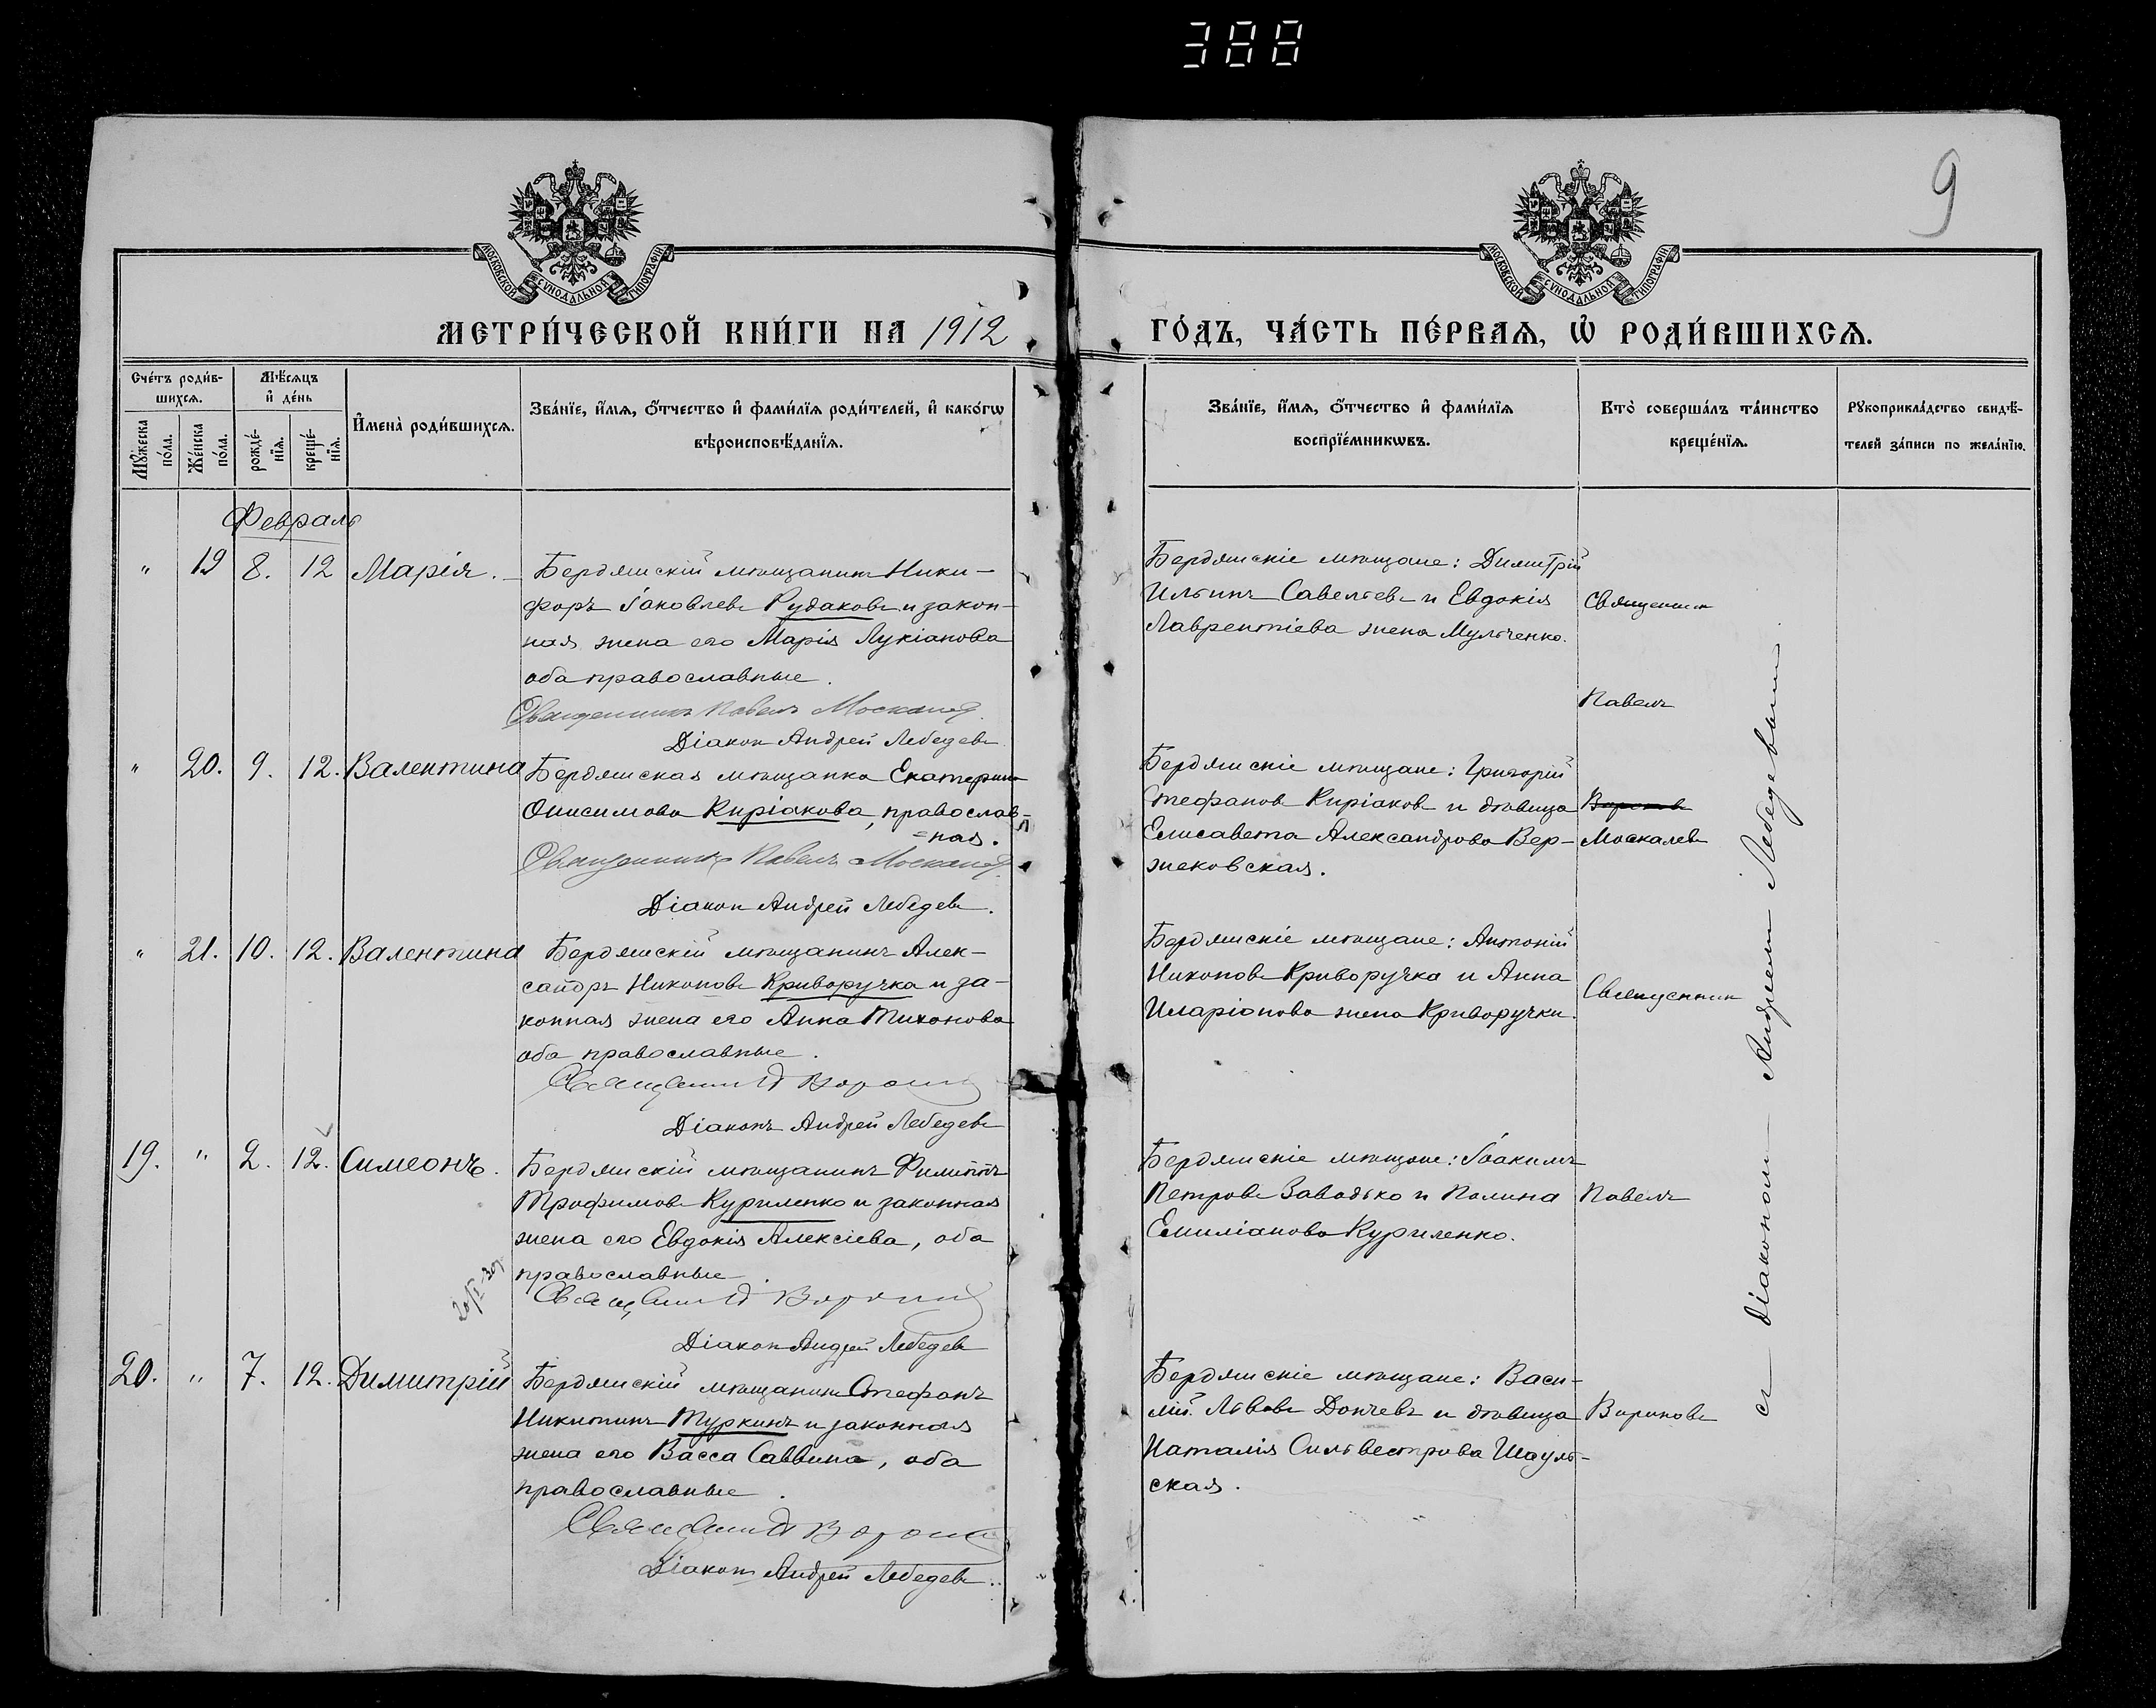 388
9
МОСКОВСКОЙ СѴНОДАЛЬНОЙ ТИПОГРАФІИ
МОСКОВСКОЙ СѴНОДАЛЬНОЙ ТИПОГРАФІИ
МЕТРИ́ЧЕСКОЙ КНИ́ГИ НА 1912
ГО́ДЪ, ЧА́СТЬ ПЕ́РВАѦ, Ѽ РОДИ́ВШИХСѦ.
Сче́тъ роди́в-
шихсѧ.
Мѣ́сѧцъ
и҆ де́нь
Мꙋ́жеска
по́ла.
Же́нска
по́ла.
рожде́-
нїѧ.
креще́-
нїѧ.
И҆мена̀ роди́вшихсѧ.
Зва́нїе, и҆́мѧ, ѻ҆́тчество и҆ фами́лїѧ роди́телей, и҆ како́гѡ
вѣроисповѣ́данїѧ.
Зва́нїе, и҆́мѧ, ѻ҆́тчество и҆ фами́лїѧ
воспрїе́мникѡвъ.
Кто̀ соверша́лъ та́инство
креще́нїѧ.
Рꙋкоприкла́дство свидѣ́-
телей за́писи по жела́нїю.
Февраль
" 19 8. 12 Марія.
Бердянскій мѣщанинъ Ники-
форъ Іаковлевъ Рудаковъ и закон-
ная жена его Марія Лукіанова
оба православные.
Священникъ Павелъ Москалев
Діаконъ Андрей Лебедевъ
Бердянскіе мѣщане: Димитрій
Ильинъ Савельевъ и Евдокія
Лаврентіева жена Мульченко.
Священник
Павелъ
" 20. 9. 12. Валентина
Бердянская мѣщанка Екатерина
Онисимова Киріакова, православ-
=ная.
Священникъ Павелъ Москалев
Діаконъ Андрей Лебедевъ.
Бердянскіе мѣщане: Григорій
Стефанов Киріаков и дѣвица
Елисавета Александрова Вер-
жековская.
Москалевъ
" 21. 10. 12. Валентина
Бердянскій мѣщанинъ Алек-
сандръ Никоновъ Криворучка и за-
конная жена его Анна Тихонова
оба православные.
Священник Ворон
Діаконъ Андрей Лебедевъ
Бердянскіе мѣщане: Антоній
Никоновъ Криворучка и Анна
Иларіонова жена Криворучки.
Священник
19. " 2. 12. Симеонъ.
Бердянскій мѣщанинъ Филиппъ
Трофимовъ Куриленко и законная
жена его Евдокія Алексіева, оба
православные.
Священник Ворон
Діаконъ Андрей Лебедевъ
Бердянскіе мѣщане: Іоакимъ
Петровъ Завадько и Полина
Емиліанова Куриленко.
Павелъ
20. " 7. 12. Димитрій
Бердянскій мѣщанинъ Стефанъ
Никитинъ Туркинъ и законная
жена его Васса Саввина, оба
православные.
Священник Ворон
Діаконъ Андрей Лебедевъ.
Бердянскіе мѣщане: Васи-
лій Львовъ Дончевъ и дѣвица
Наталія Сильвестрова Шауль-
ская.
Вороновъ
съ Діакономъ Андреемъ Лебедевымъ